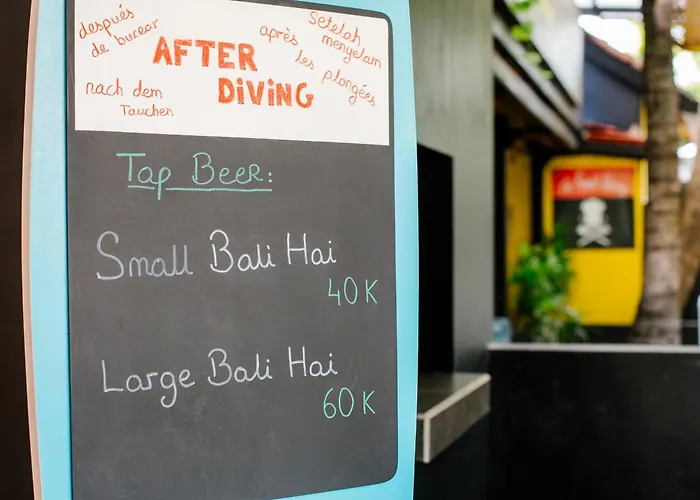 después
de bucear
AFTER
DiViNG
après
les plongées
Setelah
menyelam
nach dem
Tauchen
Tap Beer:
Small Bali Hai
40K
Large Bali Hai
60K